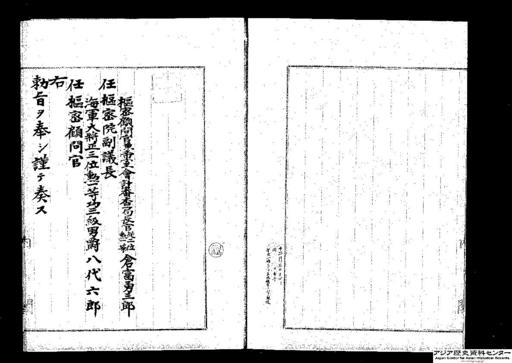 枢密顧問官兼帝室会計審査局長官正二位勲一等倉富勇三郎
任枢密院副議長
海軍大将正三位勲一等功三級男爵八代六郎
任枢密顧問官
右
勅旨ヲ奉シ謹テ奏ス
アジア歴史資料センター
Japan Center for Asian Historical Records